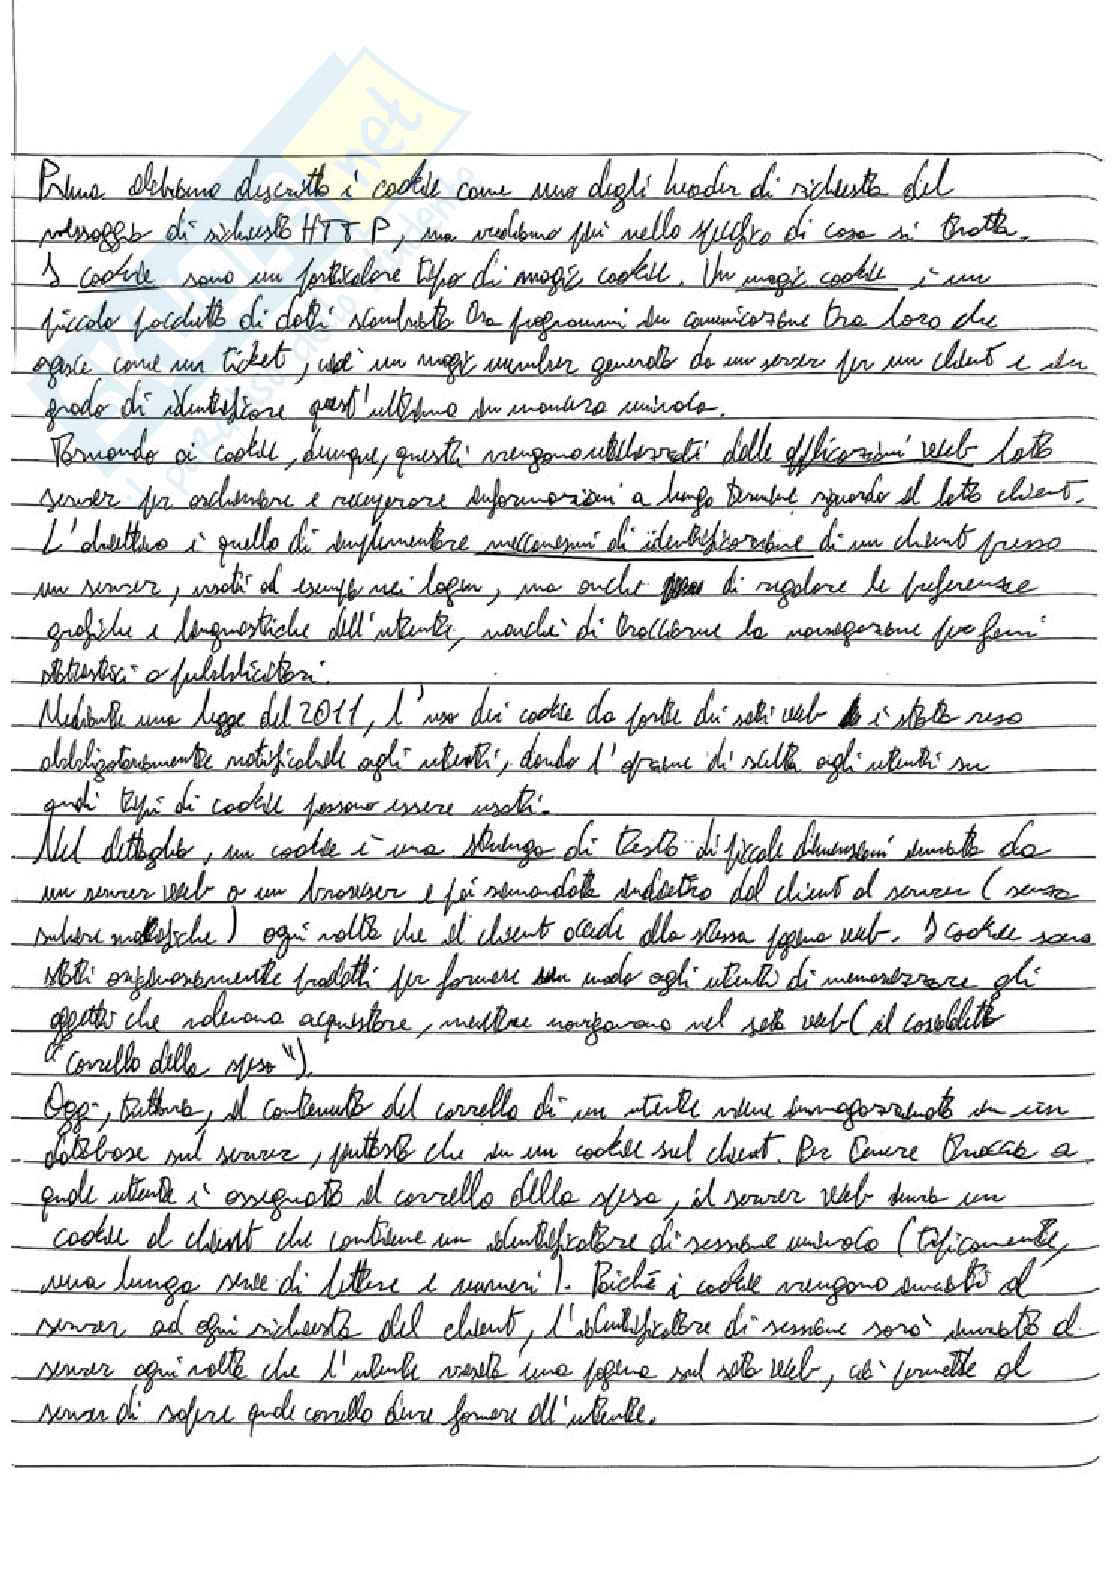 Prima abbiamo descritto i cookie come uno degli header di richiesta del
messaggio di richiesta HTTP, ma vediamo più nello specifico di cosa si tratta.
I cookie sono un particolare tipo di magic cookie. Un magic cookie è un
piccolo pacchetto di dati scambiato tra programmi in comunicazione tra loro che
agisce come un ticket, cioè un magic number generato da un server per un client e in
grado di identificare quest'ultimo in maniera univoca.
Tornando ai cookie, dunque, questi vengono utilizzati dalle applicazioni web lato
server per archiviare e recuperare informazioni a lungo termine riguardo il lato client.
L'obiettivo è quello di implementare meccanismi di identificazione di un client presso
un server, usati ad esempio nei login, ma anche di regolare le preferenze
grafiche e linguistiche dell'utente, nonché di tracciarne la navigazione per fini
statistici o pubblicitari.
Mediante una legge del 2011, l'uso dei cookie da parte dei siti web è stato reso
obbligatoriamente notificabile agli utenti, dando l'opzione di scelta agli utenti su
quali tipi di cookie possono essere usati.
Nel dettaglio, un cookie è una stringa di testo di piccole dimensioni inviata da
un server web a un browser e poi rimandata indietro dal client al server (senza
subire modifiche) ogni volta che il client accede alla stessa pagina web. I cookie sono
stati originariamente prodotti per fornire un modo agli utenti di memorizzare gli
oggetti che volevano acquistare, mentre navigavano nel sito web (il cosiddetto
"carrello della spesa").
Oggi, tuttavia, il contenuto del carrello di un utente viene immagazzinato in un
database sul server, piuttosto che in un cookie sul client. Per tenere traccia a
quale utente è assegnato il carrello della spesa, il server web invia un
cookie al client che contiene un identificatore di sessione univoco (tipicamente,
una lunga serie di lettere e numeri). Poiché i cookie vengono inviati al
server ad ogni richiesta del client, l'identificatore di sessione sarà inviato al
server ogni volta che l'utente visita una pagina sul sito web, ciò permette al
server di sapere quale carrello deve fornire all'utente.